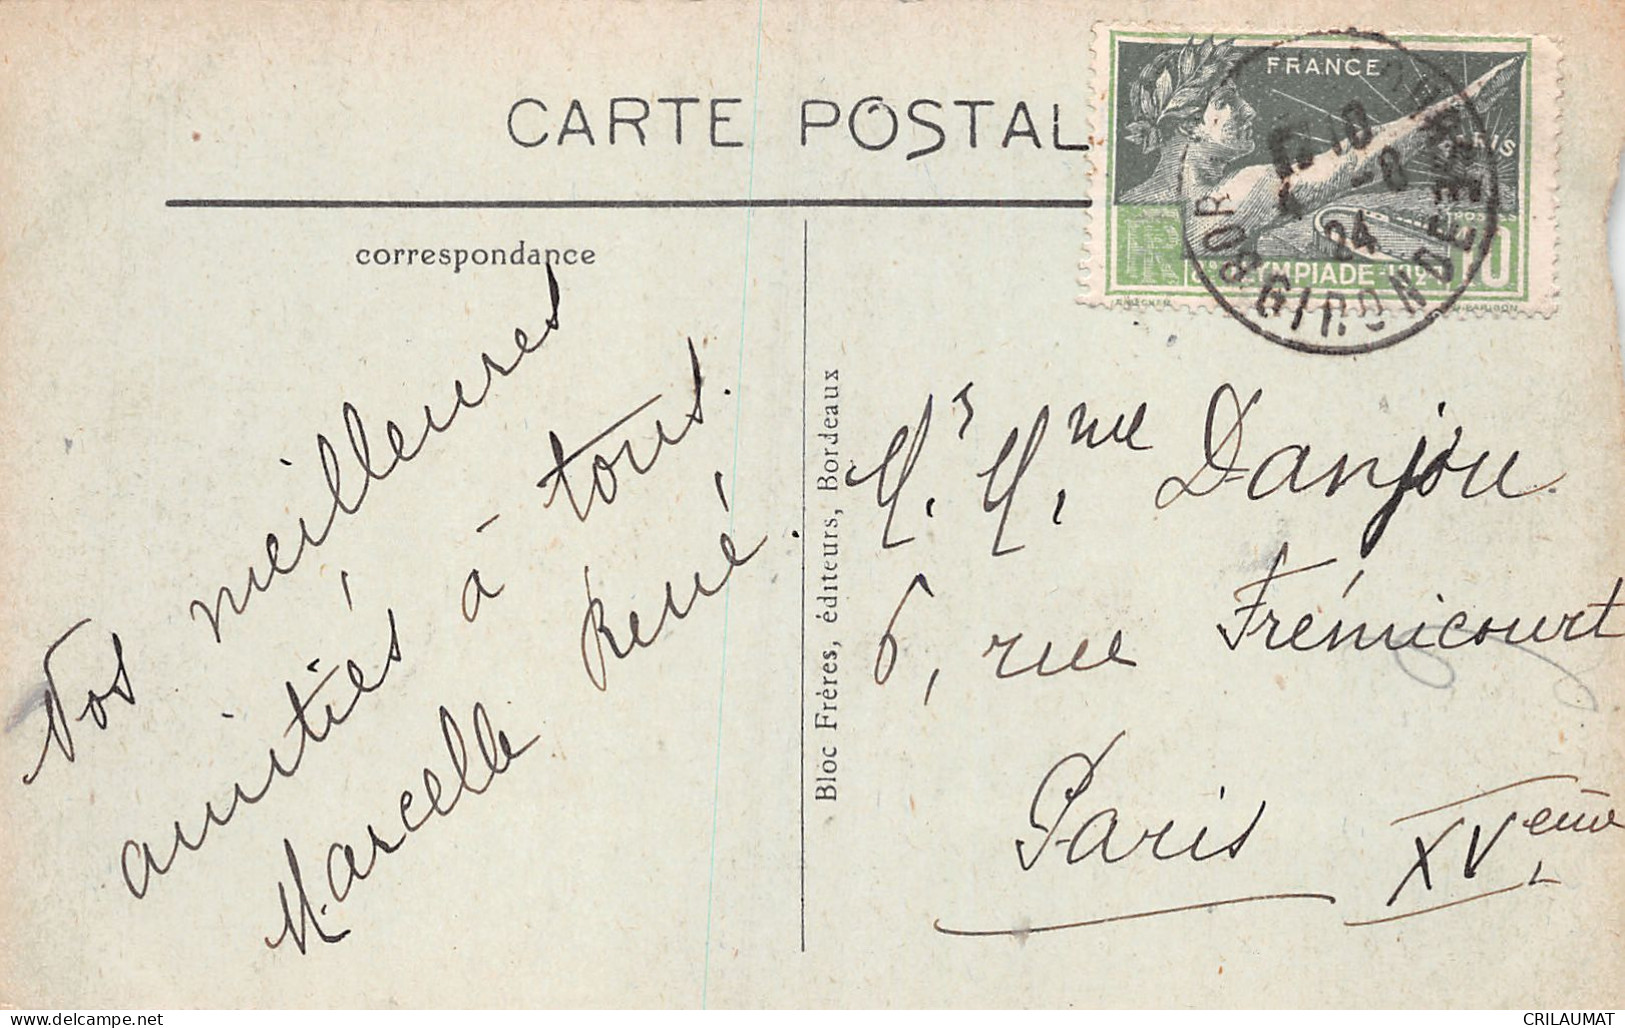 CARTE POSTALE
correspondance
Nos meilleures
amitiés à tous.
Marcelle René.
Bloc Frères, éditeurs, Bordeaux
FRANCE
PARIS
RF 8e OLYMPIADE-1924 10
BOR
GIRONDE
24
Mr. Mme. Danjou.
6, rue Frémicourt
Paris XVeme
CRILAUMAT